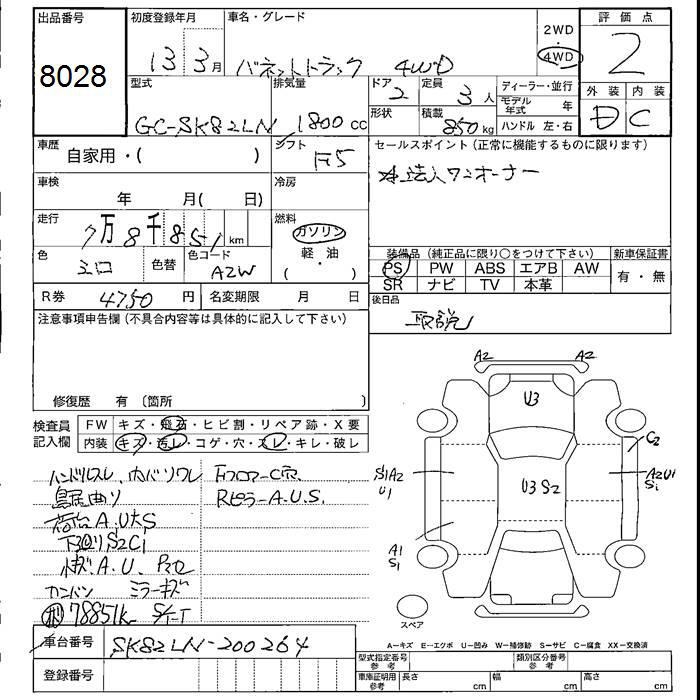 出品番号
8028
初度登録年月
13 3 月
車名・グレード
バネットトラック 4WD
2WD
・
4WD
評価点
2
外装 内装
D C
型式
GC-SK82LN
排気量
1800 cc
ドア
2
形状
定員
3 人
積載
850 kg
ディーラー・並行
モデル年式 年
ハンドル 左・右
車歴
自家用・( )
シフト
F5
セールスポイント(正常に機能するものに限ります)
法人ワンオーナー
車検
年 月( 日)
冷房
走行
7万8千851 km
燃料
ガソリン
・
軽・油
( )
色
シロ
色替
色コード
A2W
装備品(純正品に限り○をつけて下さい)
新車保証書
PS PW ABS エアB AW
SR ナビ TV 本革
有・無
R券 4750 円
名変期限 月 日
後日品
取説
注意事項申告欄(不具合内容等は具体的に記入して下さい)
修復歴 有(箇所 )
検査員記入欄
FW キズ・飛石・ヒビ割・リペア跡・X要
内装 キズ・汚レ・コゲ・穴・スレ・キレ・破レ
ハンドルスレ、カバーワレ
FフロアーC穴
RピラーA.U.S.
荷台A.U大S
下回りS2C1
A.U.
カンバン ミラーキズ
78851k
車台番号
SK82LN-200264
登録番号
A2 A2
U3
C2
S1A2
U1
U3 S2
A2U1
S1
A1
S1
スペア
A…キズ E…エクボ U…凹み W…補修跡 S…サビ C…腐食 XX…交換済
型式指定番号
参考
類別区分番号
参考
車庫証明用
参考
長さ cm
幅 cm
高さ cm